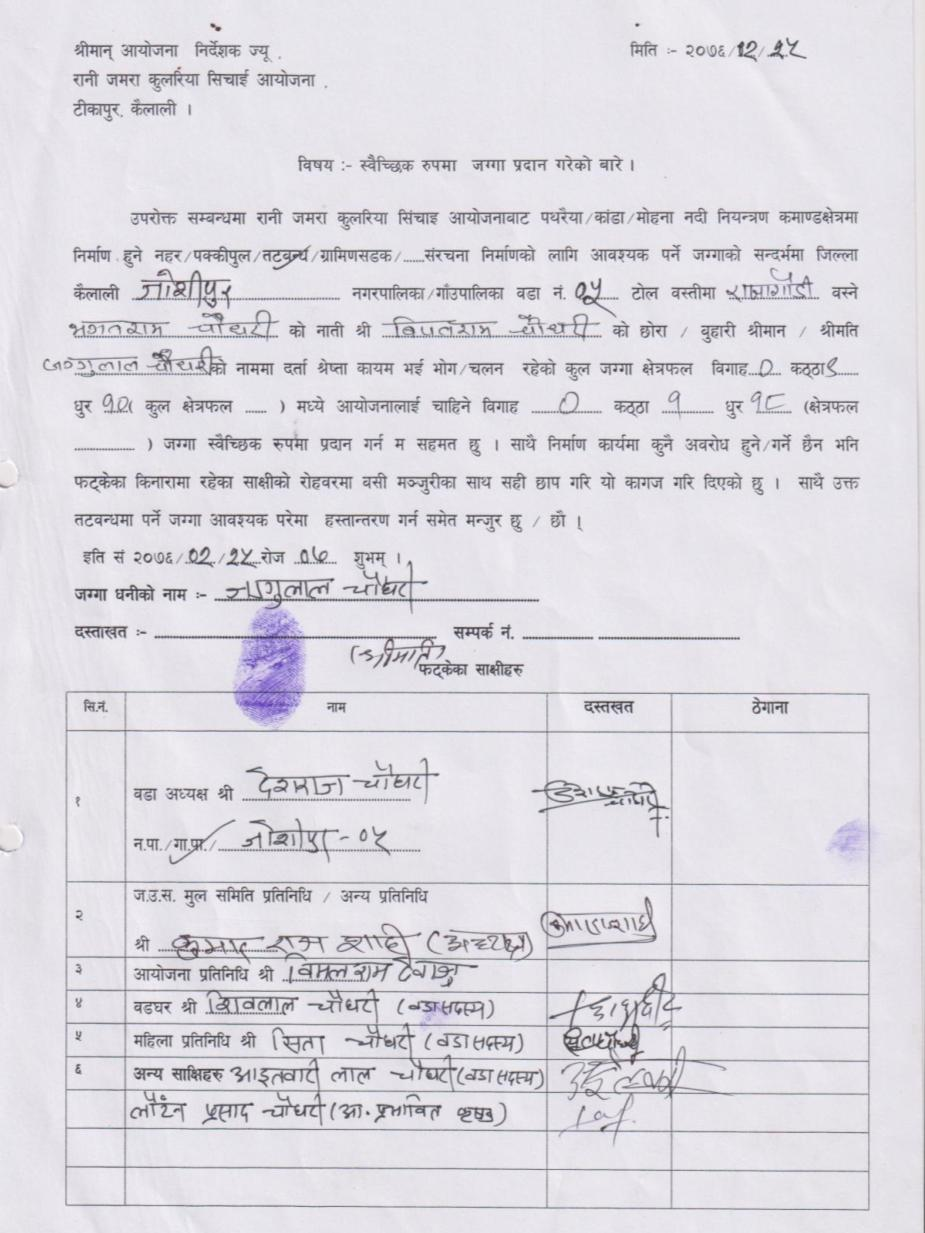 श्रीमान् आयोजना निर्देशक ज्यू, मिति :- २०७६/12/२५
रानी जमरा कुलरिया सिचाई आयोजना,
टीकापुर, कैलाली ।
विषय :- स्वैच्छिक रुपमा जग्गा प्रदान गरेको बारे ।
उपरोक्त सम्बन्धमा रानी जमरा कुलरिया सिंचाइ आयोजनावाट पथरैया/कांडा/मोहना नदी नियन्त्रण कमाण्डक्षेत्रमा
निर्माण हुने नहर/पक्कीपुल/तटवन्ध/ग्रामिणसडक/......संरचना निर्माणको लागि आवश्यक पर्ने जग्गाको सन्दर्भमा जिल्ला
कैलाली जोशीपुर नगरपालिका/गाँउपालिका वडा नं. ०५ टोल वस्तीमा वस्ने
भगतराम चौधरी को नाती श्री विपतराम चौधरी को छोरा / वुहारी श्रीमान / श्रीमति
जगुलाल चौधरीको नाममा दर्ता श्रेष्ता कायम भई भोग/चलन रहेको कुल जग्गा क्षेत्रफल विगाह ० कठ्ठा
धुर कुल क्षेत्रफल ...... ) मध्ये आयोजनालाई चाहिने विगाह ० कठ्ठा १ धुर १८ (क्षेत्रफल
................ ) जग्गा स्वैच्छिक रुपमा प्रदान गर्न म सहमत छु । साथै निर्माण कार्यमा कुनै अवरोध हुने/गर्ने छैन भनि
फट्केका किनारामा रहेका साक्षीको रोहवरमा वसी मञ्जुरीका साथ सही छाप गरि यो कागज गरि दिएको छु । साथै उक्त
तटवन्धमा पर्ने जग्गा आवश्यक परेमा हस्तान्तरण गर्न समेत मन्जुर छु / छौ ।
इति सं २०७६/०२/२५ रोज ०७ शुभम् ।
जग्गा धनीको नाम :- जगुलाल चौधरी
दस्ताखत :- सम्पर्क नं.
(श्रीमति)
फट्केका साक्षीहरु
सि.नं. नाम दस्तखत ठेगाना
१ वडा अध्यक्ष श्री देशराज चौधरी
न.पा./गा.पा./ जोशीपुर - ०५
२ ज.उ.स. मुल समिति प्रतिनिधि / अन्य प्रतिनिधि
श्री कुमार राज शाही (अध्यक्ष)
३ आयोजना प्रतिनिधि श्री विमलराम
४ वडघर श्री शिवलाल चौधरी (वडा सदस्य)
५ महिला प्रतिनिधि श्री सिता चौधरी (वडा सदस्य)
६ अन्य साक्षिहरु आइतवारी लाल चौधरी (वडा सदस्य)
लौटन प्रसाद चौधरी (आ. प्रभावित कृषक)